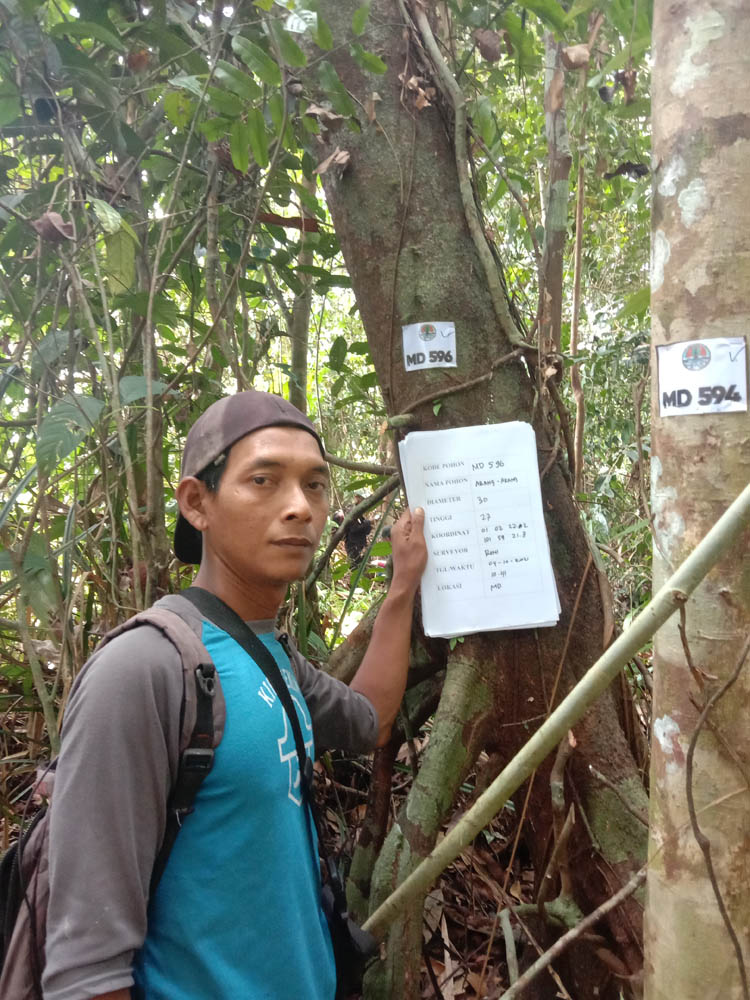 MD 596
MD 594
KODE POHON MD 596
NAMA POHON ARANG-ARANG
DIAMETER 30
TINGGI 27
KOORDINAT 01 02
101 59 21.8
SURVEYOR
TGL/WAKTU
LOKASI MD